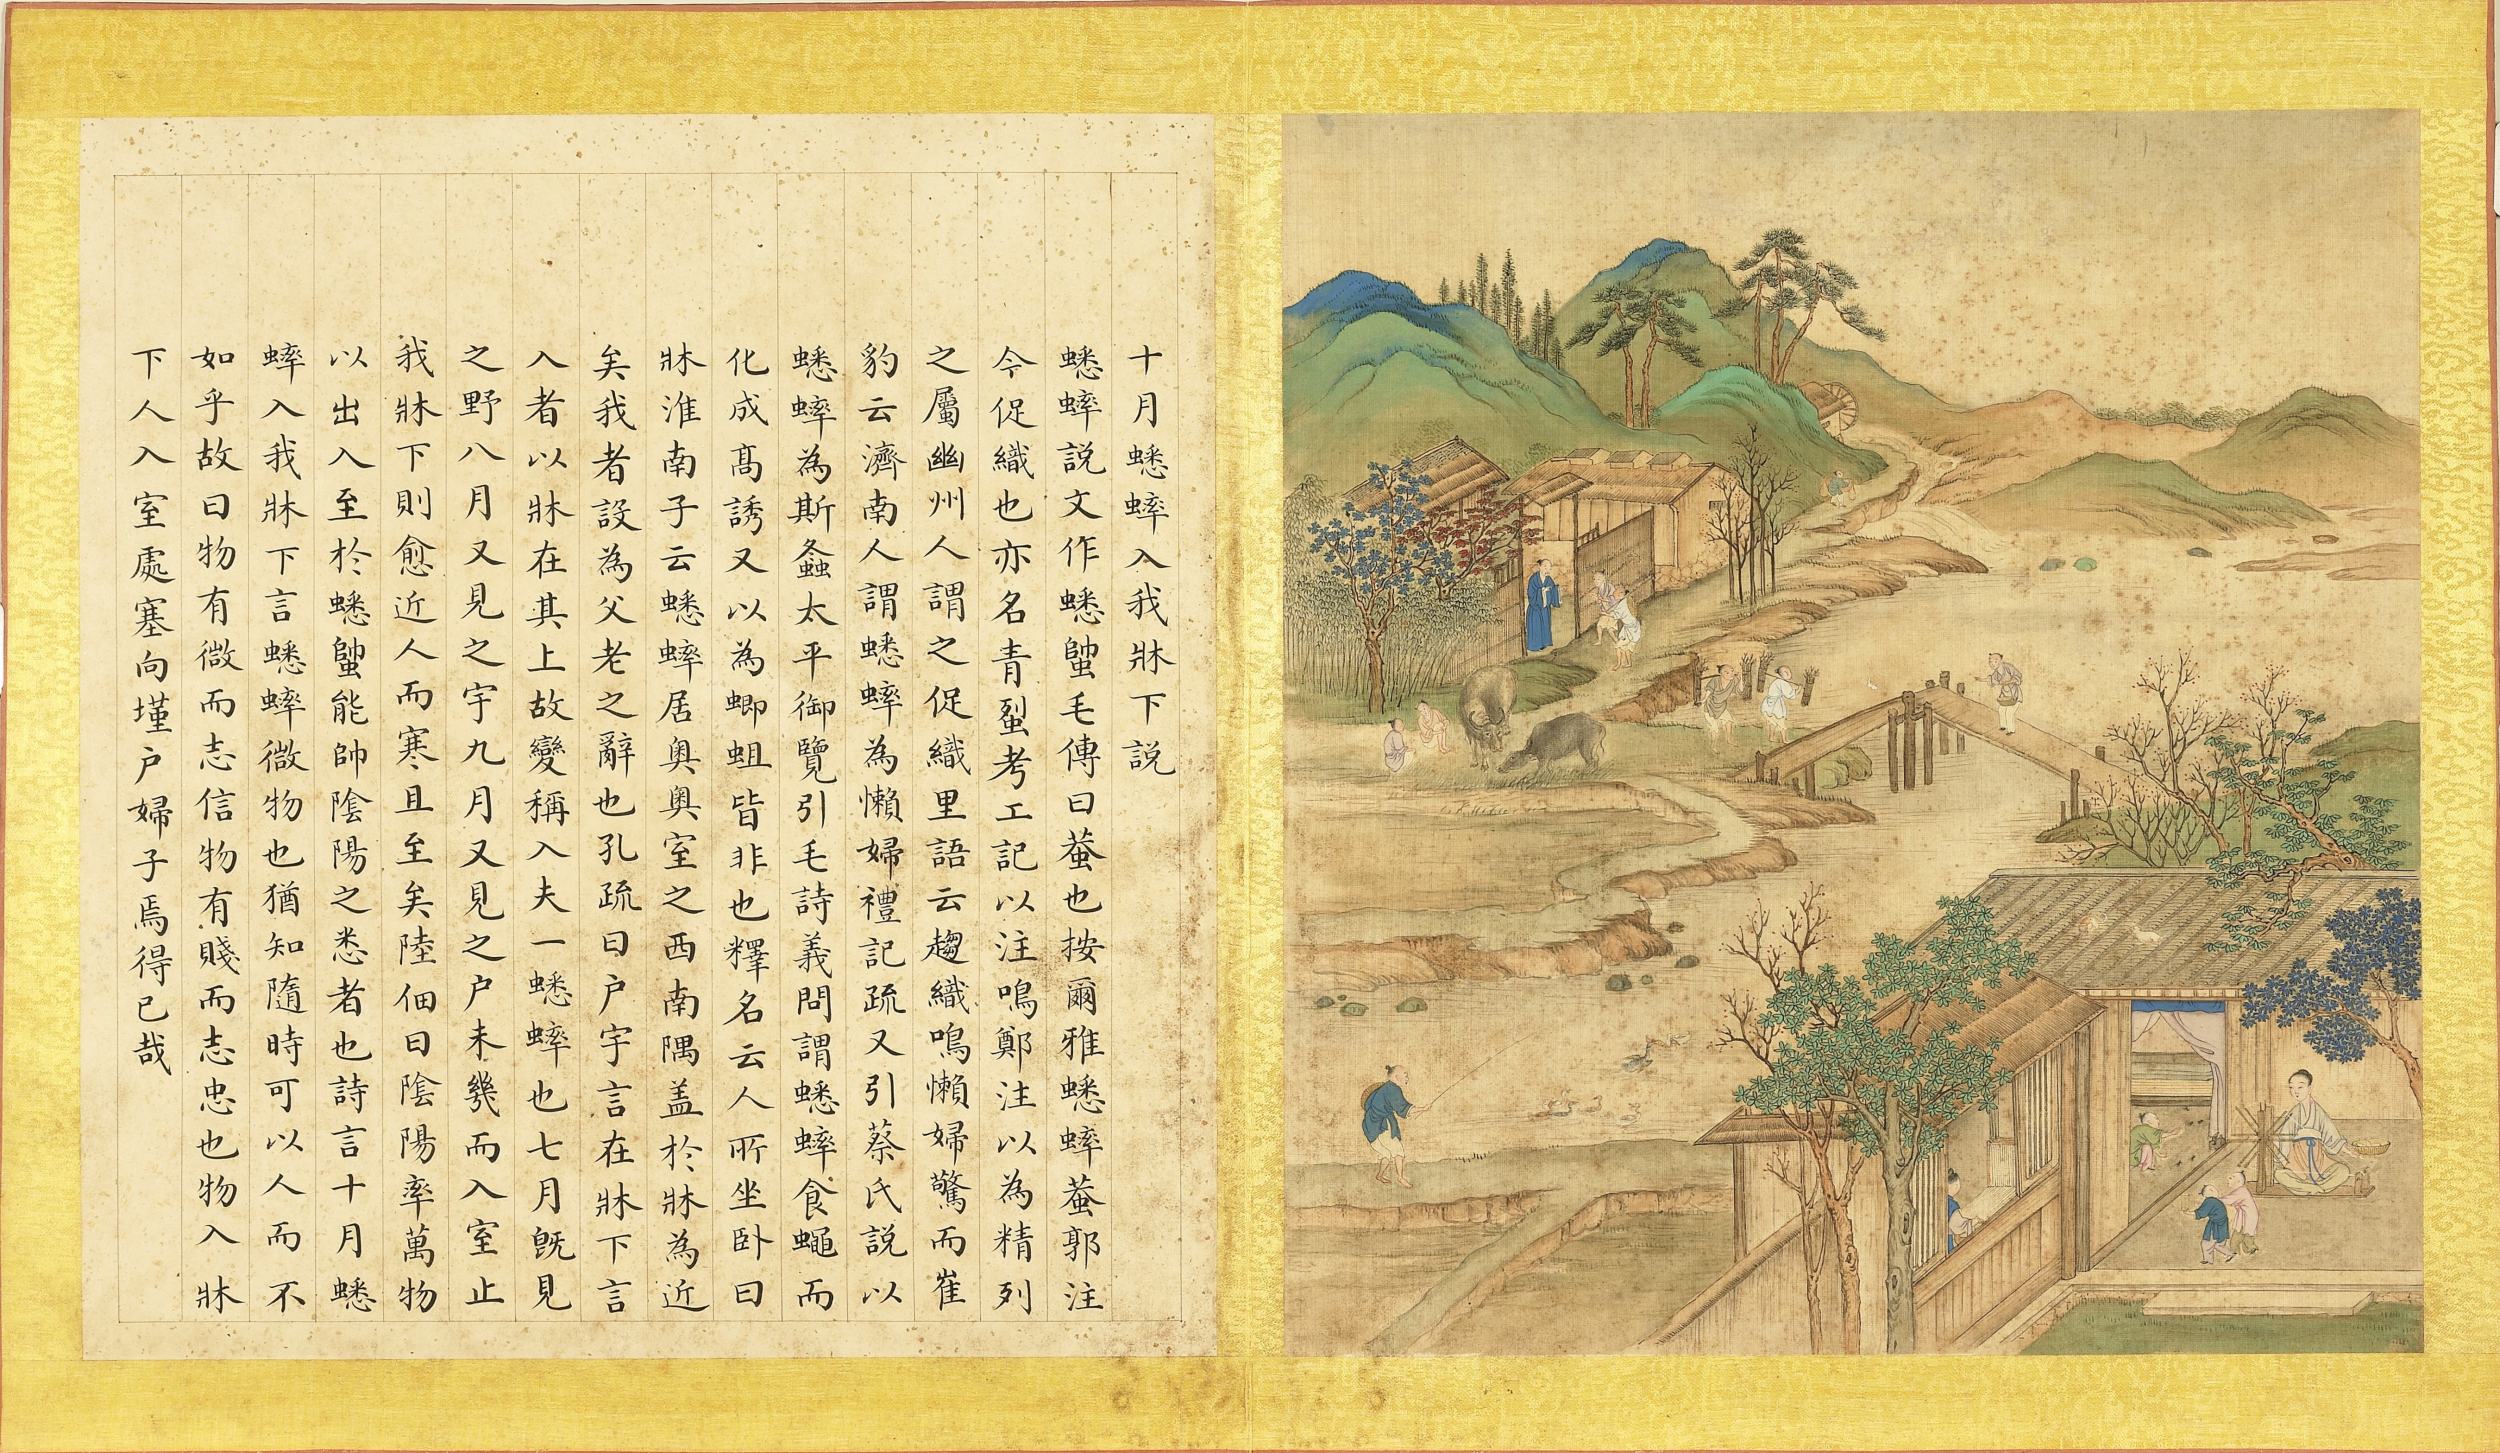 十月蟋蟀入我牀下説
蟋蟀説文作蟋𧍓毛傳曰蛬也按爾雅蟋蟀蛬郭注
今促織也亦名青𧊿考工記以注鳴鄭注以為精列
之屬幽州人謂之促織里語云趨織鳴懶婦驚而崔
豹云濟南人謂蟋蟀為懶婦禮記疏又引蔡氏説以
蟋蟀為斯螽太平御覽引毛詩義問謂蟋蟀食蠅而
化成髙誘又以為蝍蛆皆非也釋名云人所坐卧曰
牀淮南子云蟋蟀居奥奥室之西南隅盖於牀為近
矣我者設為父老之辭也孔疏曰户宇言在牀下言
入者以牀在其上故變稱入夫一蟋蟀也七月既見
之野八月又見之宇九月又見之户未幾而入室止
我牀下則愈近人而寒且至矣陸佃曰隂陽率萬物
以出入至於蟋𧍓能帥隂陽之悉者也詩言十月蟋
蟀入我牀下言蟋蟀微物也猶知隨時可以人而不
如乎故曰物有微而志信物有賤而志忠也物入牀
下人入室處塞向墐户婦子焉得已哉